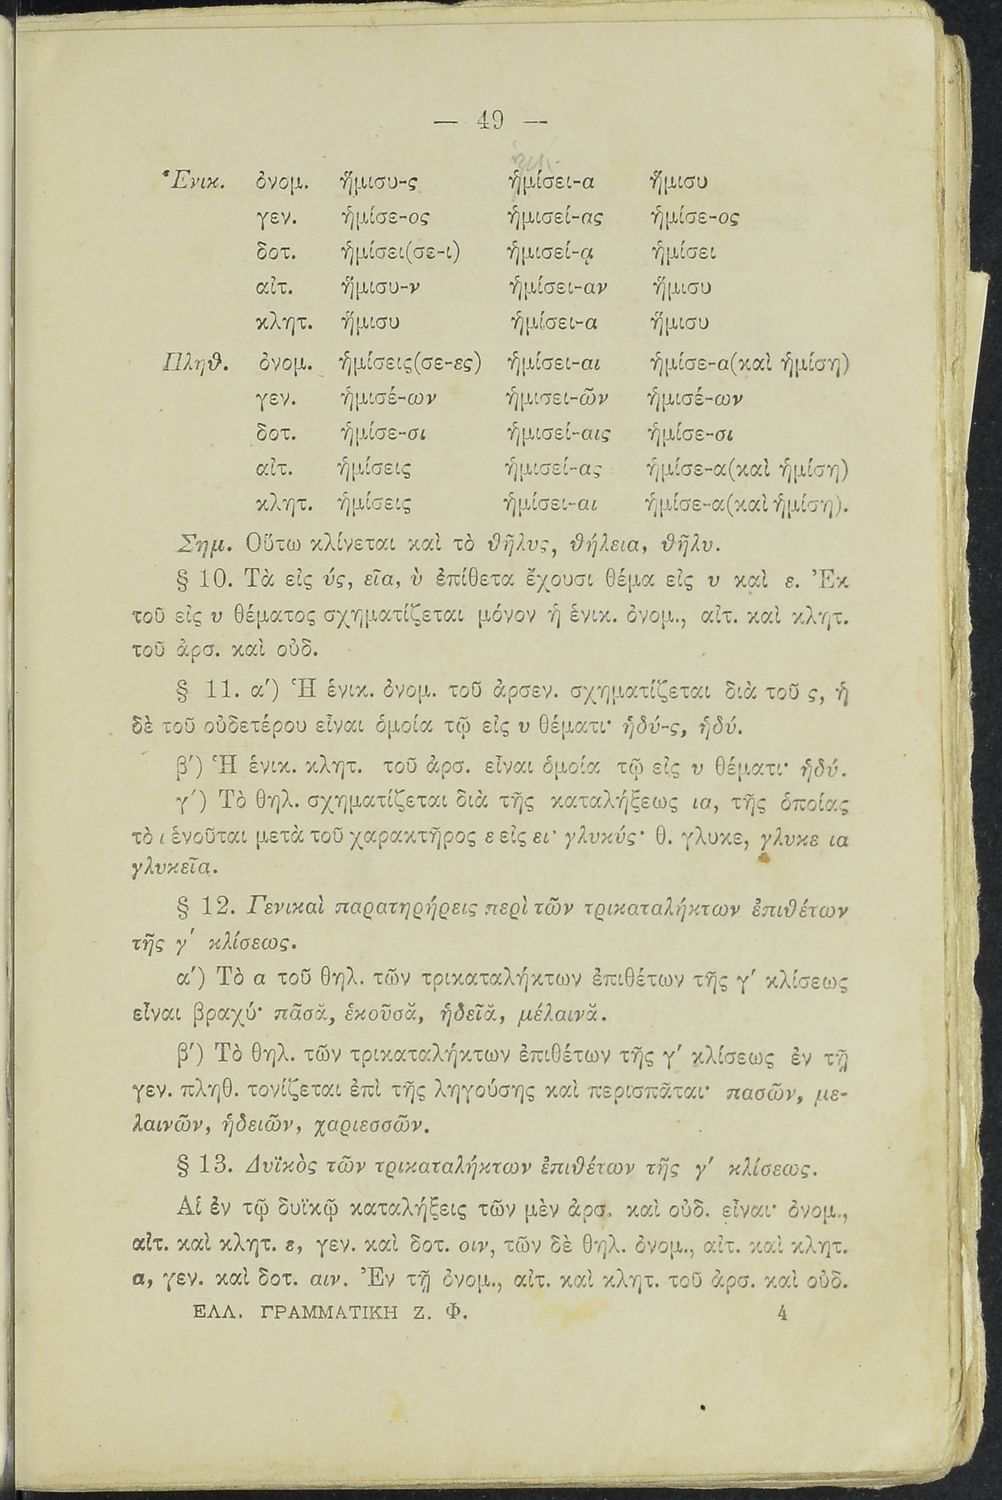 — 49 —
Ἑνικ. ὀνομ. ἥμισυ-ς ἡμίσει-α ἥμισυ
γεν. ἡμίσε-ος ἡμισεί-ας ἡμίσε-ος
δοτ. ἡμίσει(σε-ι) ἡμισεί-ᾳ ἡμίσει
αἰτ. ἥμισυ-ν ἡμίσει-αν ἥμισυ
κλητ. ἥμισυ ἡμίσει-α ἥμισυ
Πληθ. ὀνομ. ἡμίσεις(σε-ες) ἡμίσει-αι ἡμίσε-α(καὶ ἡμίση)
γεν. ἡμισέ-ων ἡμισει-ῶν ἡμισέ-ων
δοτ. ἡμίσε-σι ἡμισεί-αις ἡμίσε-σι
αἰτ. ἡμίσεις ἡμισεί-ας ἡμίσε-α(καὶ ἡμίση)
κλητ. ἡμίσεις ἡμίσει-αι ἡμίσε-α(καὶ ἡμίση).
Σημ. Οὕτω κλίνεται καὶ τὸ θῆλυς, θήλεια, θῆλυ.
§ 10. Τὰ εἰς ύς, εῖα, ὺ ἐπίθετα ἔχουσι θέμα εἰς υ καὶ ε. Ἐκ
τοῦ εἰς υ θέματος σχηματίζεται μόνον ἡ ἑνικ. ὀνομ., αἰτ. καὶ κλητ.
τοῦ ἀρσ. καὶ οὐδ.
§ 11. α') Ἡ ἑνικ. ὀνομ. τοῦ ἀρσεν. σχηματίζεται διὰ τοῦ ς, ἡ
δὲ τοῦ οὐδετέρου εἶναι ὁμοία τῷ εἰς υ θέματι· ἡδύ-ς, ἡδύ.
β') Ἡ ἑνικ. κλητ. τοῦ ἀρσ. εἶναι ὁμοία τῷ εἰς υ θέματι· ἡδύ.
γ') Τὸ θηλ. σχηματίζεται διὰ τῆς καταλήξεως ια, τῆς ὁποίας
τὸ ι ἑνοῦται μετὰ τοῦ χαρακτῆρος ε εἰς ει· γλυκύς· θ. γλυκε, γλυκε ια
γλυκεῖα.
§ 12. Γενικαὶ παρατηρήρεις περὶ τῶν τρικαταλήκτων ἐπιθέτων
τῆς γ' κλίσεως.
α') Τὸ α τοῦ θηλ. τῶν τρικαταλήκτων ἐπιθέτων τῆς γ' κλίσεως
εἶναι βραχύ· πᾶσᾰ, ἑκοῦσᾰ, ἡδεῖᾰ, μέλαινᾰ.
β') Τὸ θηλ. τῶν τρικαταλήκτων ἐπιθέτων τῆς γ' κλίσεως ἐν τῇ
γεν. πληθ. τονίζεται ἐπὶ τῆς ληγούσης καὶ περισπᾶται· πασῶν, με-
λαινῶν, ἡδειῶν, χαριεσσῶν.
§ 13. Δυϊκὸς τῶν τρικαταλήκτων ἐπιθέτων τῆς γ' κλίσεως.
Αἱ ἐν τῷ δυϊκῷ καταλήξεις τῶν μὲν ἀρσ. καὶ οὐδ. εἶναι· ὀνομ.,
αἰτ. καὶ κλητ. ε, γεν. καὶ δοτ. οιν, τῶν δὲ θηλ. ὀνομ., αἰτ. καὶ κλητ.
α, γεν. καὶ δοτ. αιν. Ἐν τῇ ὀνομ., αἰτ. καὶ κλητ. τοῦ ἀρσ. καὶ οὐδ.
ΕΛΛ. ΓΡΑΜΜΑΤΙΚΗ Ζ. Φ. 4